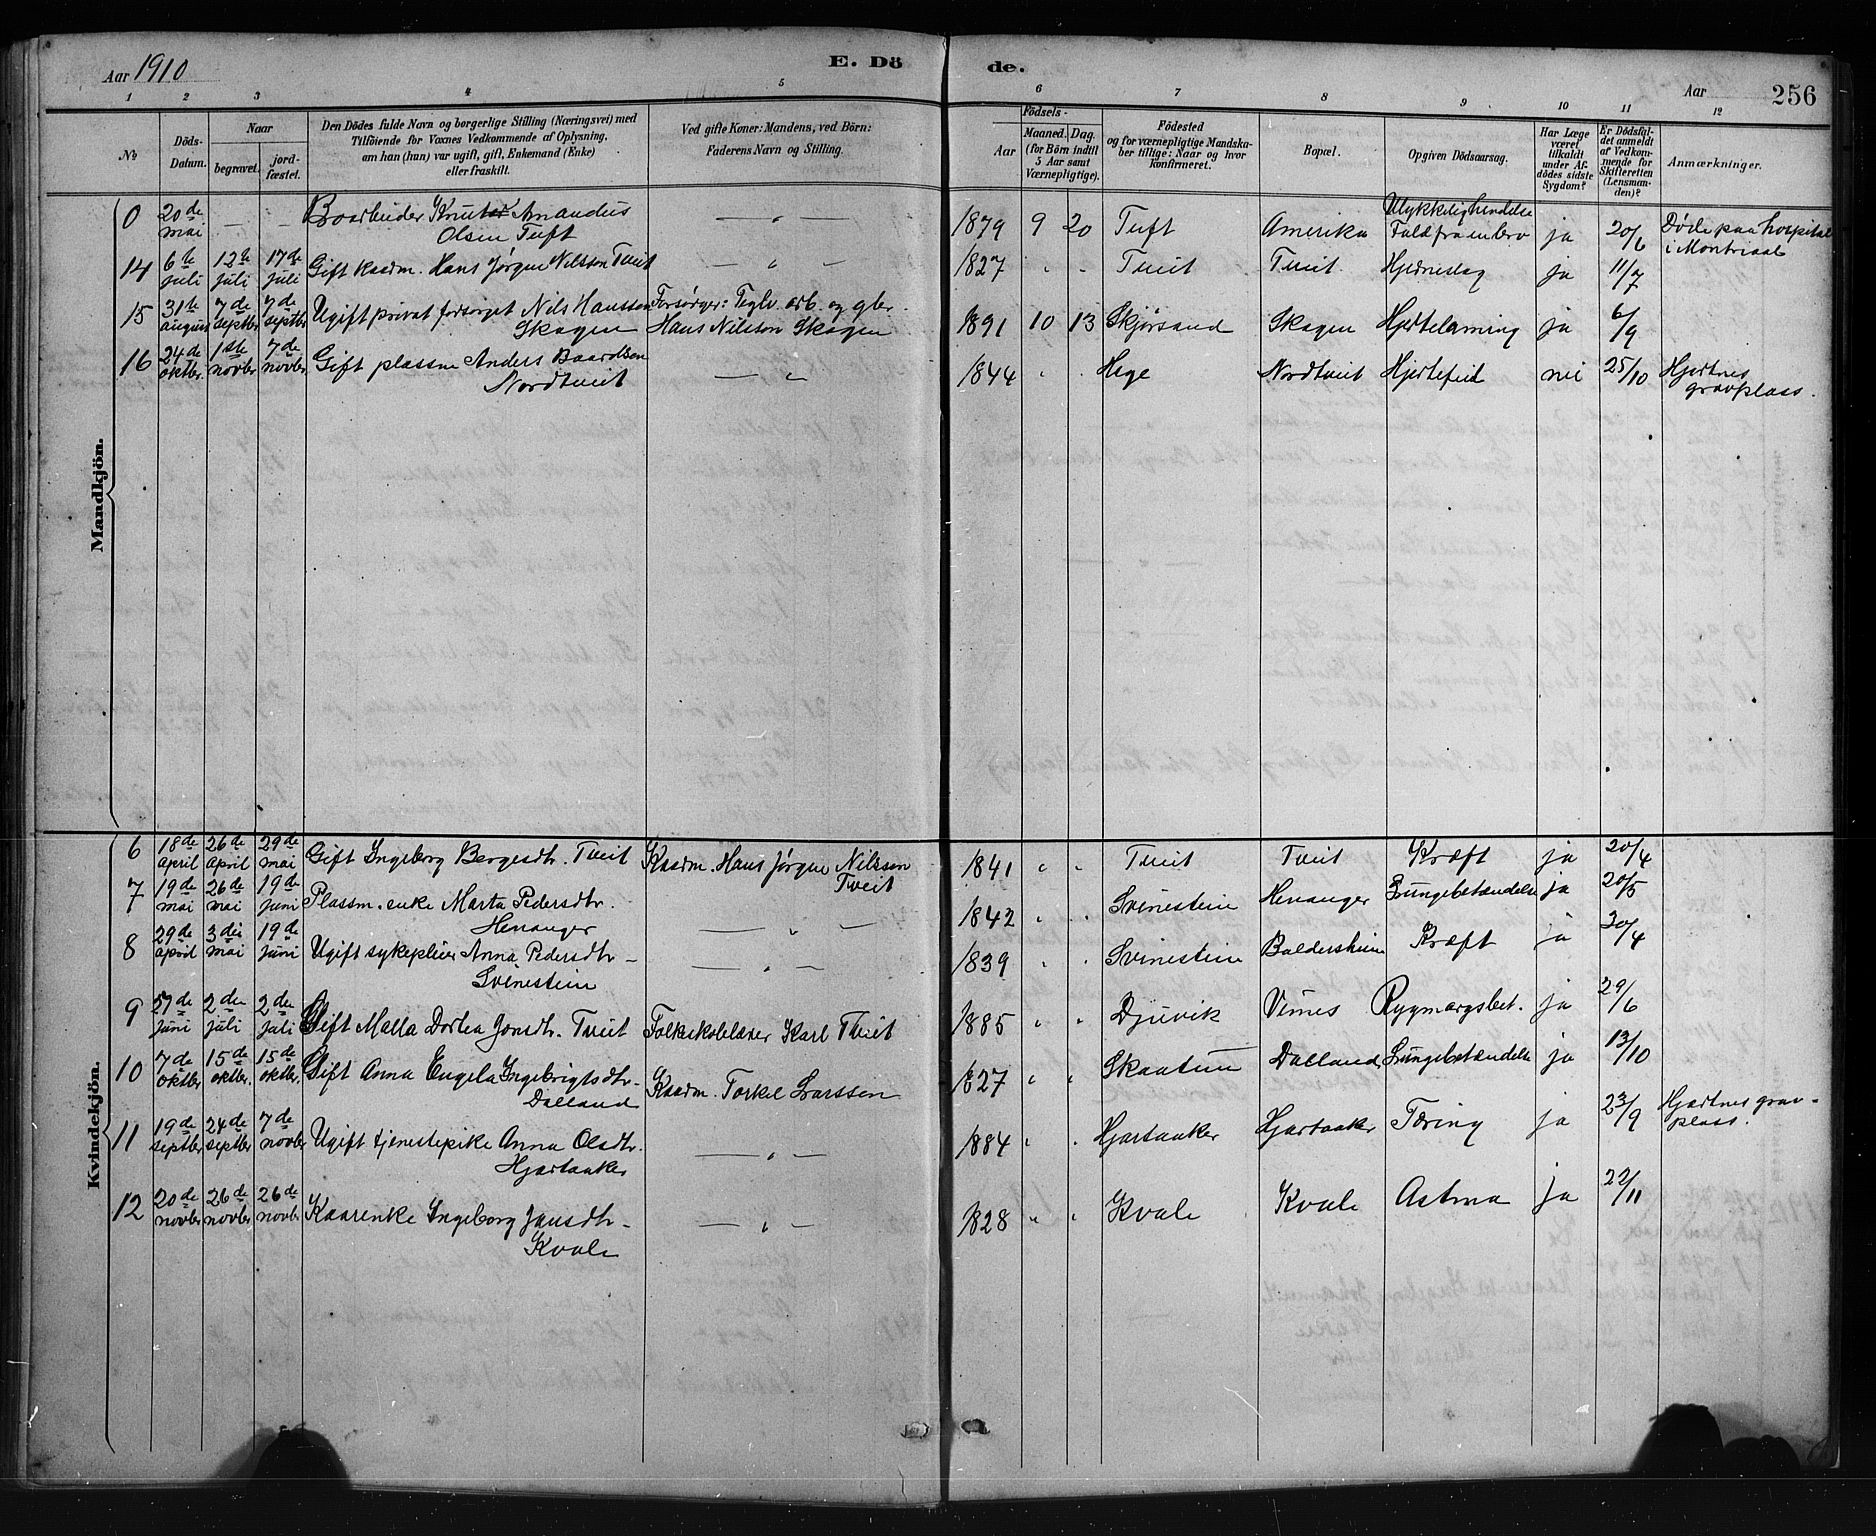 Aar 1910
E. Dö
de.
Aar
256
1 2 3 4 5 6 7 8 9 10 11 12
No
Döds-Datum.
Naar
begravet.
jord-fæstet.
Den Dödes fulde Navn og borgerlige Stilling (Næringsvei) med
Tilföiende for Voxnes Vedkommende af Oplysning,
am han (hun) var ugift, gift, Enkemand (Enke)
eller fraskilt.
Ved gifte Koner: Mandens, ved Börn:
Faderens Navn og Stilling.
Födsels-
Aar
Maaned. Dag.
(for Börn indtil
5 Aar samt
Værnepligtige).
Födested
og for værnepligtige Mandska-
ber tillige: Naar og hvor
konfirmeret.
Bopæl.
Opgiven Dödsaarsag.
Har Læge
været
tilkaldt
under Af-
dödes sidste
Sygdom?
Er Dödsfal-
det anmeldt
af Vedkom-
mende for
Skifteretten
(Lensman-
den)?
Anmærkninger.
Mandkjön.
0 20de mai — — Knut Amandus Olsen Tuft — " — 1879 9 20 Tuft Amerika Ulykkelighændelse Fald fra en bro ja 20/6 Døde paa hospital i Montreal
14 6te juli 12te juli 17de juli Gift kaarm. Hans Jørgen Nilssen Tveit — " — 1827 " " Tveit Tveit Hjerneslag ja 11/7
15 31te august 7de septbr 7de septbr Ugift privat forsørget Nils Hanssen Skogen Forsørger: Teglv. arb. og gbr. Hans Nilsson Skogen 1891 10 13 Skjørsand Skogen Hjertelamning ja 6/9
16 24de oktbr. 1ste novbr 7de novbr Gift plassm Anders Baardsen Nordtveit — " 1844 " " Hege Nordtveit Hjertefeil nei 25/10 Hjartnes gravplass.
Kvindekjön.
6 18de april 26de april 29de mai Gift Ingeborg Bergesdtr. Tveit Kaarm. Hans Jørgen Nilsson Tveit 1841 " " Tveit Tveit Kræft ja 20/4
7 19de mai 26de mai 19de juni Plassm. enke Marta Pedersdtr. Henanger — " — 1842 " " Svinestein Henanger Lungebetændelse ja 20/5
8 29de april 3die mai 19de juni Ugift sykepleier Anna Pedersdtr — Svinestein — " — 1839 " " Svinestein Baldersheim Kræft ja 30/4
9 27de juni 2den juli 2den juli Gift Malla Dortea Jonsdtr. Tveit Folkeskolelærer Karl Tveit 1885 " " Djuvik Vines Rygmargsbet. ja 29/6
10 7de oktbr 15de oktbr. 15de oktbr. Gift Anna Engela Ingebrigtsdtr — Dalland Kaarm. Torkel Larssen 1827 " " Skaatun Dalland Lungebetændelse ja 13/10
11 19de septbr 24de septbr 7de novbr Ugift tjenestepike Anna Olsdtr. Hjartaaker — " — 1884 " " Hjartaaker Hjartaaker Tæring ja 23/9 Hjartnes grav-plass.
12 20de novbr 26de novbr 26de novbr Kaarenke Ingeborg Jansdtr — Kvale — " — 1828 " " Kvale Kvale Astma ja 22/11